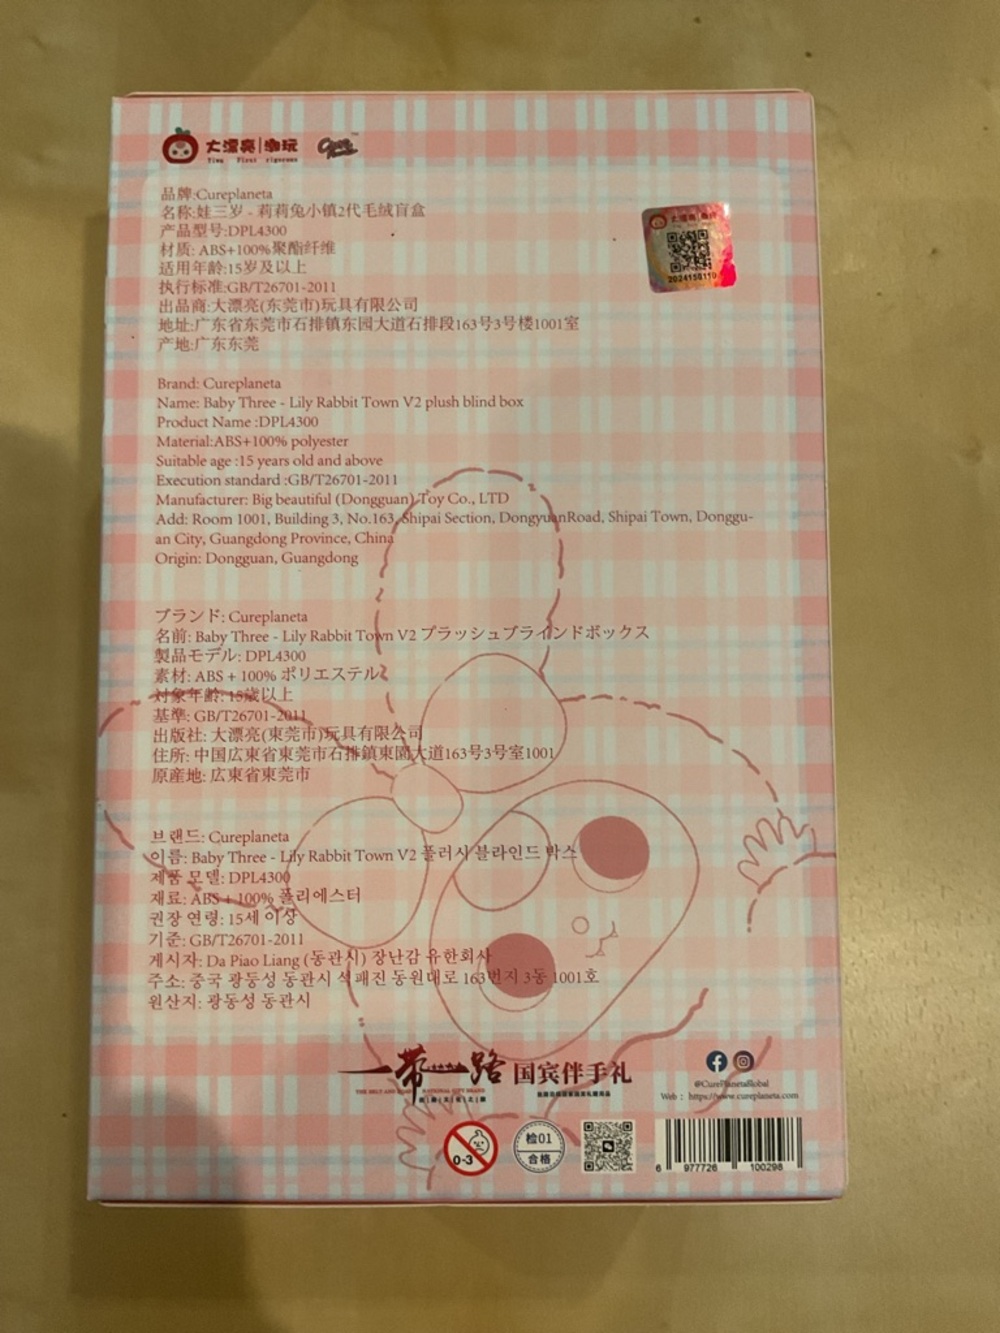 大漂亮|潮玩
品牌:Cureplaneta
名称:娃三岁 - 莉莉兔小镇2代毛绒盲盒
产品型号:DPL4300
材质: ABS+100%聚酯纤维
适用年龄:15岁及以上
执行标准:GB/T26701-2011
出品商:大漂亮(东莞市)玩具有限公司
地址:广东省东莞市石排镇东园大道石排段163号3号楼1001室
产地:广东东莞
大漂亮|潮玩
2024150110
Brand: Cureplaneta
Name: Baby Three - Lily Rabbit Town V2 plush blind box
Product Name :DPL4300
Material:ABS+100% polyester
Suitable age :15 years old and above
Execution standard :GB/T26701-2011
Manufacturer: Big beautiful (Dongguan) Toy Co., LTD
Add: Room 1001, Building 3, No.163, Shipai Section, DongyuanRoad, Shipai Town, Donggu-
an City, Guangdong Province, China
Origin: Dongguan, Guangdong
ブランド: Cureplaneta
名前: Baby Three - Lily Rabbit Town V2 プラッシュブラインドボックス
製品モデル: DPL4300
素材: ABS + 100% ポリエステル
対象年齢: 15歳以上
基準: GB/T26701-2011
出版社: 大漂亮(東莞市)玩具有限公司
住所: 中国広東省東莞市石排鎮東園大道163号3号室1001
原産地: 広東省東莞市
브랜드: Cureplaneta
이름: Baby Three - Lily Rabbit Town V2 플러시 블라인드 박스
제품 모델: DPL4300
재료: ABS + 100% 폴리에스터
권장 연령: 15세 이상
기준: GB/T26701-2011
게시자: Da Piao Liang (동관시) 장난감 유한회사
주소: 중국 광둥성 동관시 석패진 동원대로 163번지 3동 1001호
원산지: 광동성 동관시
一带一路 国宾伴手礼
@CurePlanetaGlobal
Web : https://www.cureplaneta.com
0-3
检01
合格
6 977726 100298